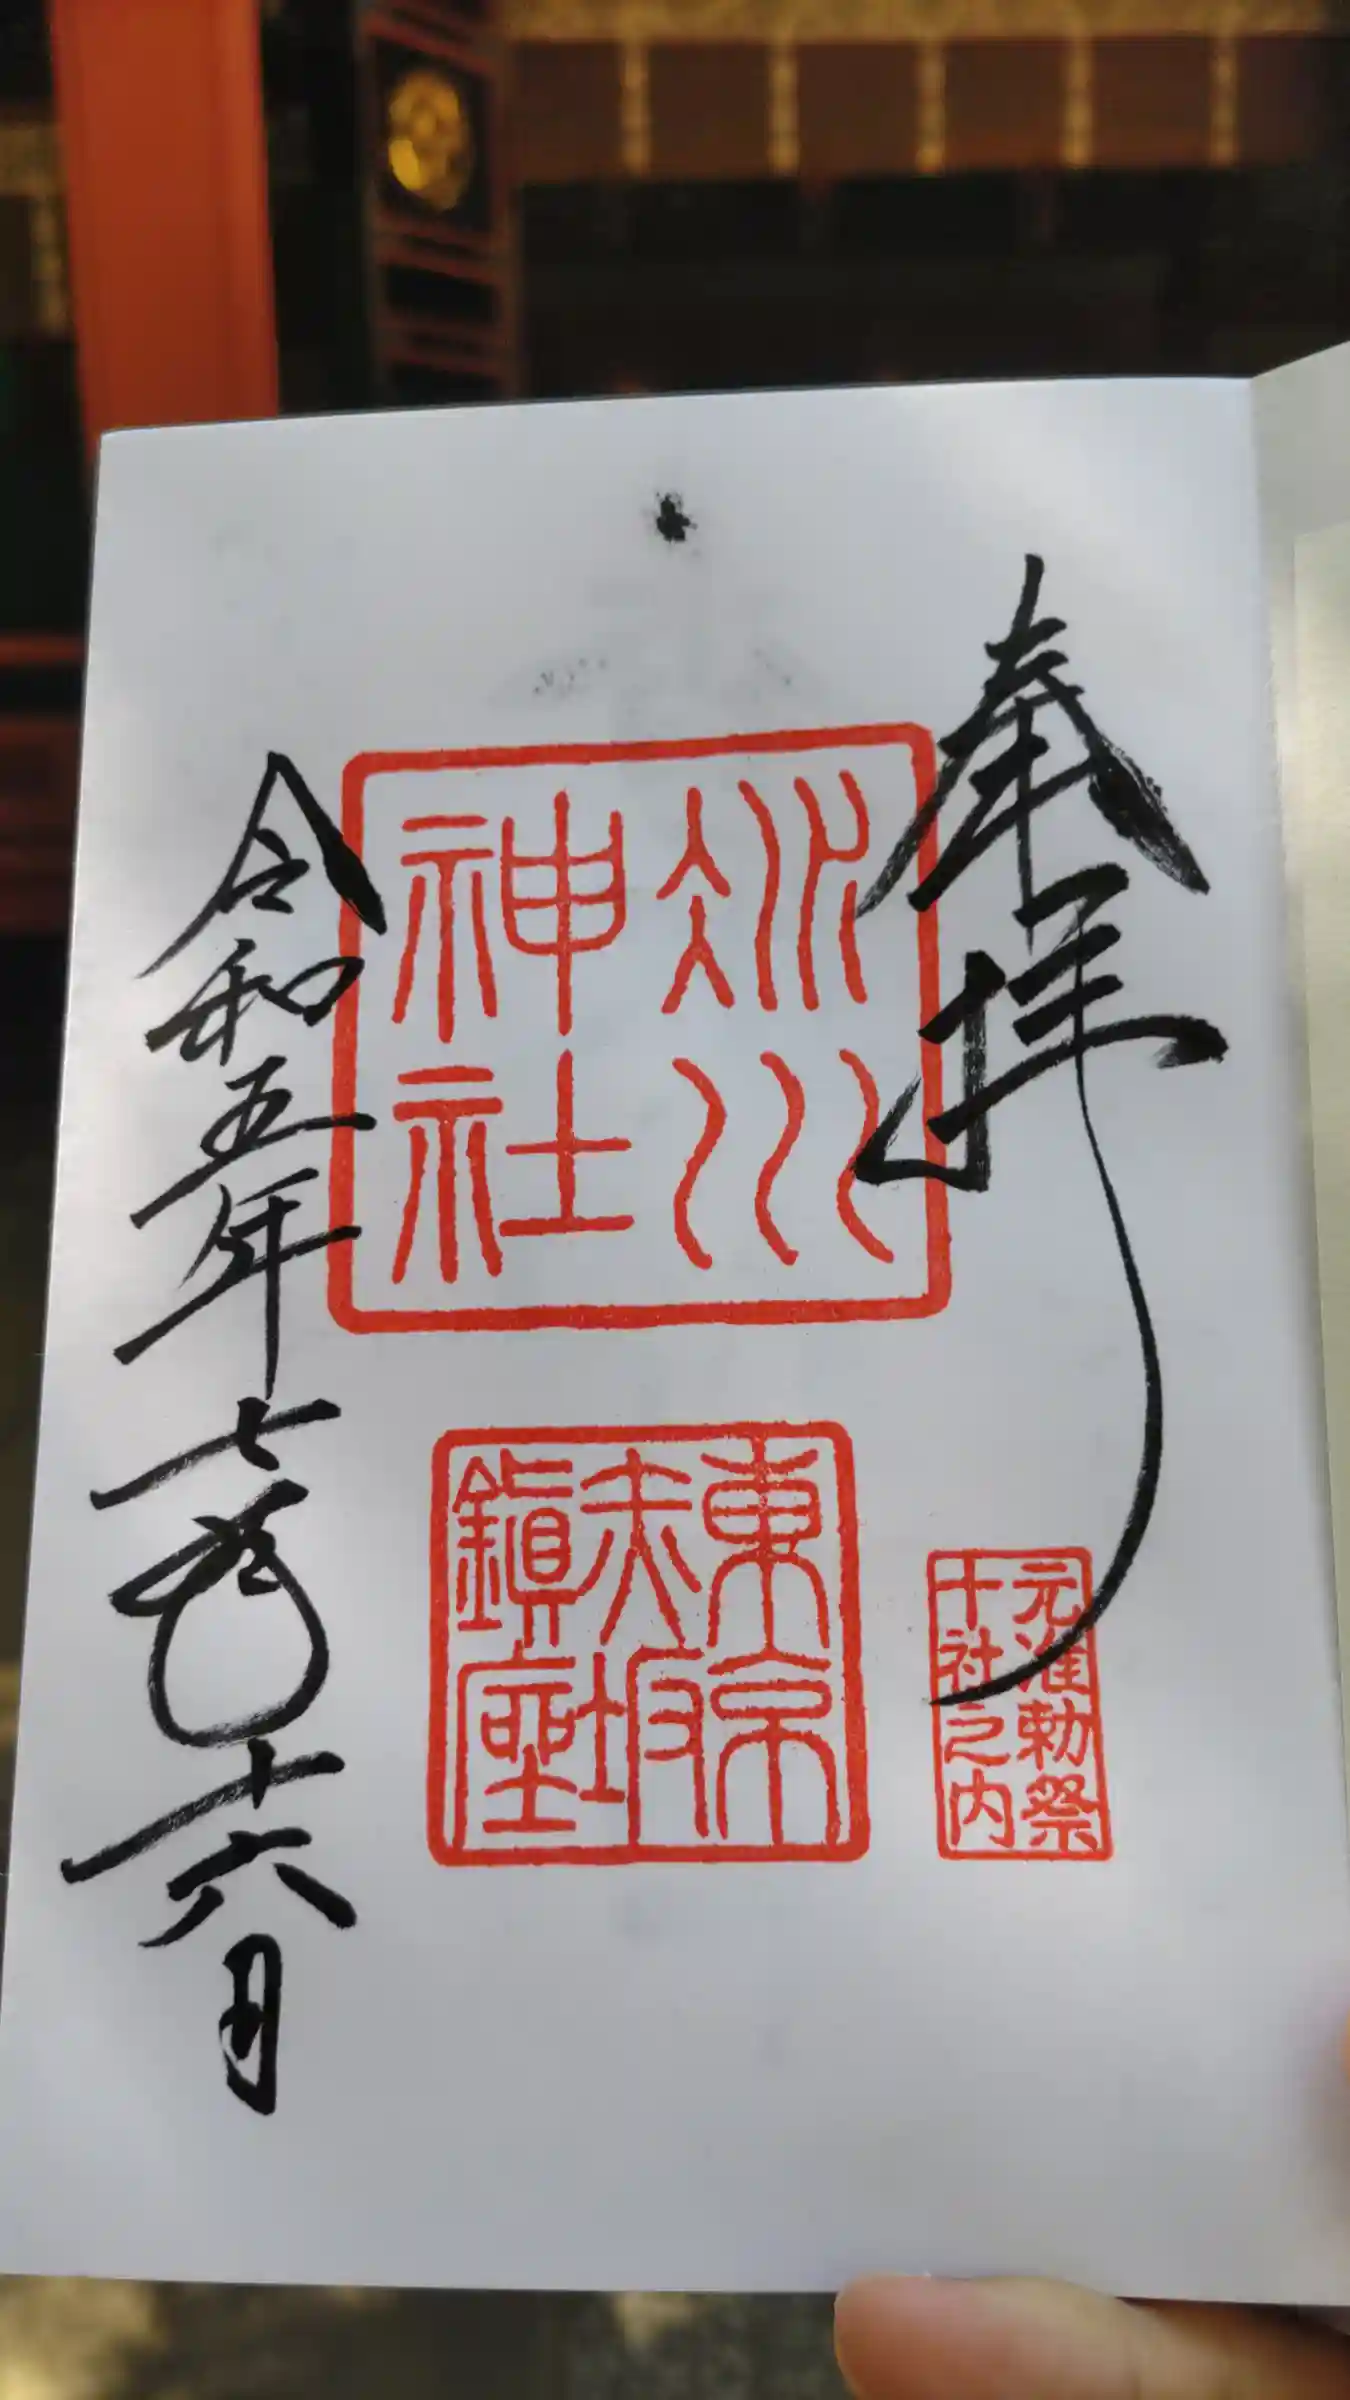 奉拝
元准勅祭
十社之内
冰川
神社
東京
赤坂
鎮座
令和五年七月十六日